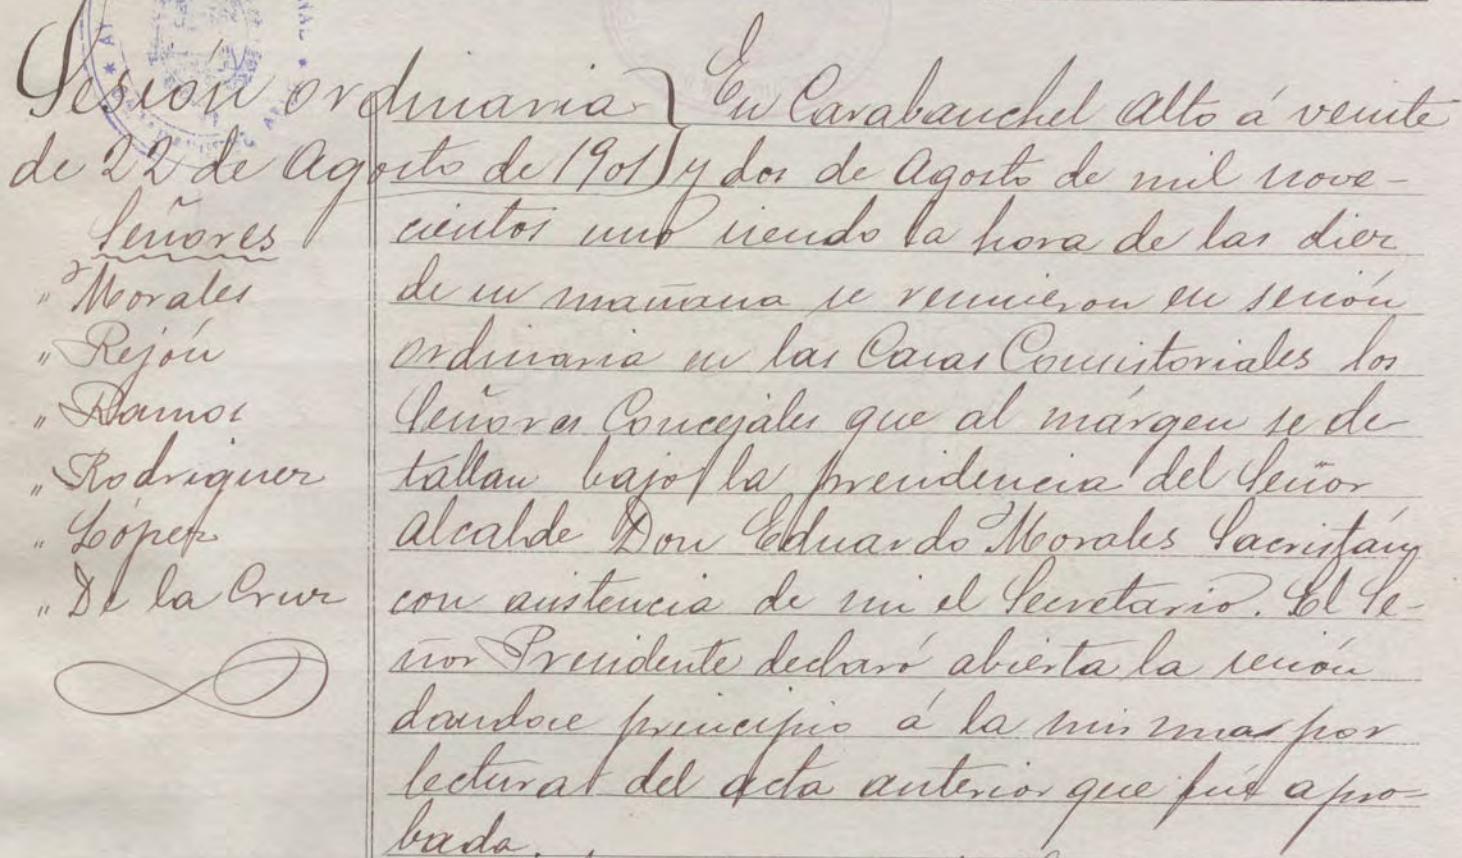 Sesión ordinaria
de 22 de Agosto de 1901
Señores
" Morales
" Rejón
" Ramos
" Rodriguez
" López
" De la Cruz
En Carabanchel Alto á veinte
y dos de Agosto de mil nove-
cientos uno siendo la hora de las diez
de su mañana se reunieron en sesión
ordinaria en las Casas Consistoriales los
Señores Concejales que al márgen se de-
tallan bajo la presidencia del Señor
Alcalde Don Eduardo Morales Sacristán
con asistencia de mi el Secretario. El Se-
ñor Presidente declaró abierta la sesión
dandose principio á la misma por
lectura del acta anterior que fué apro-
bada.